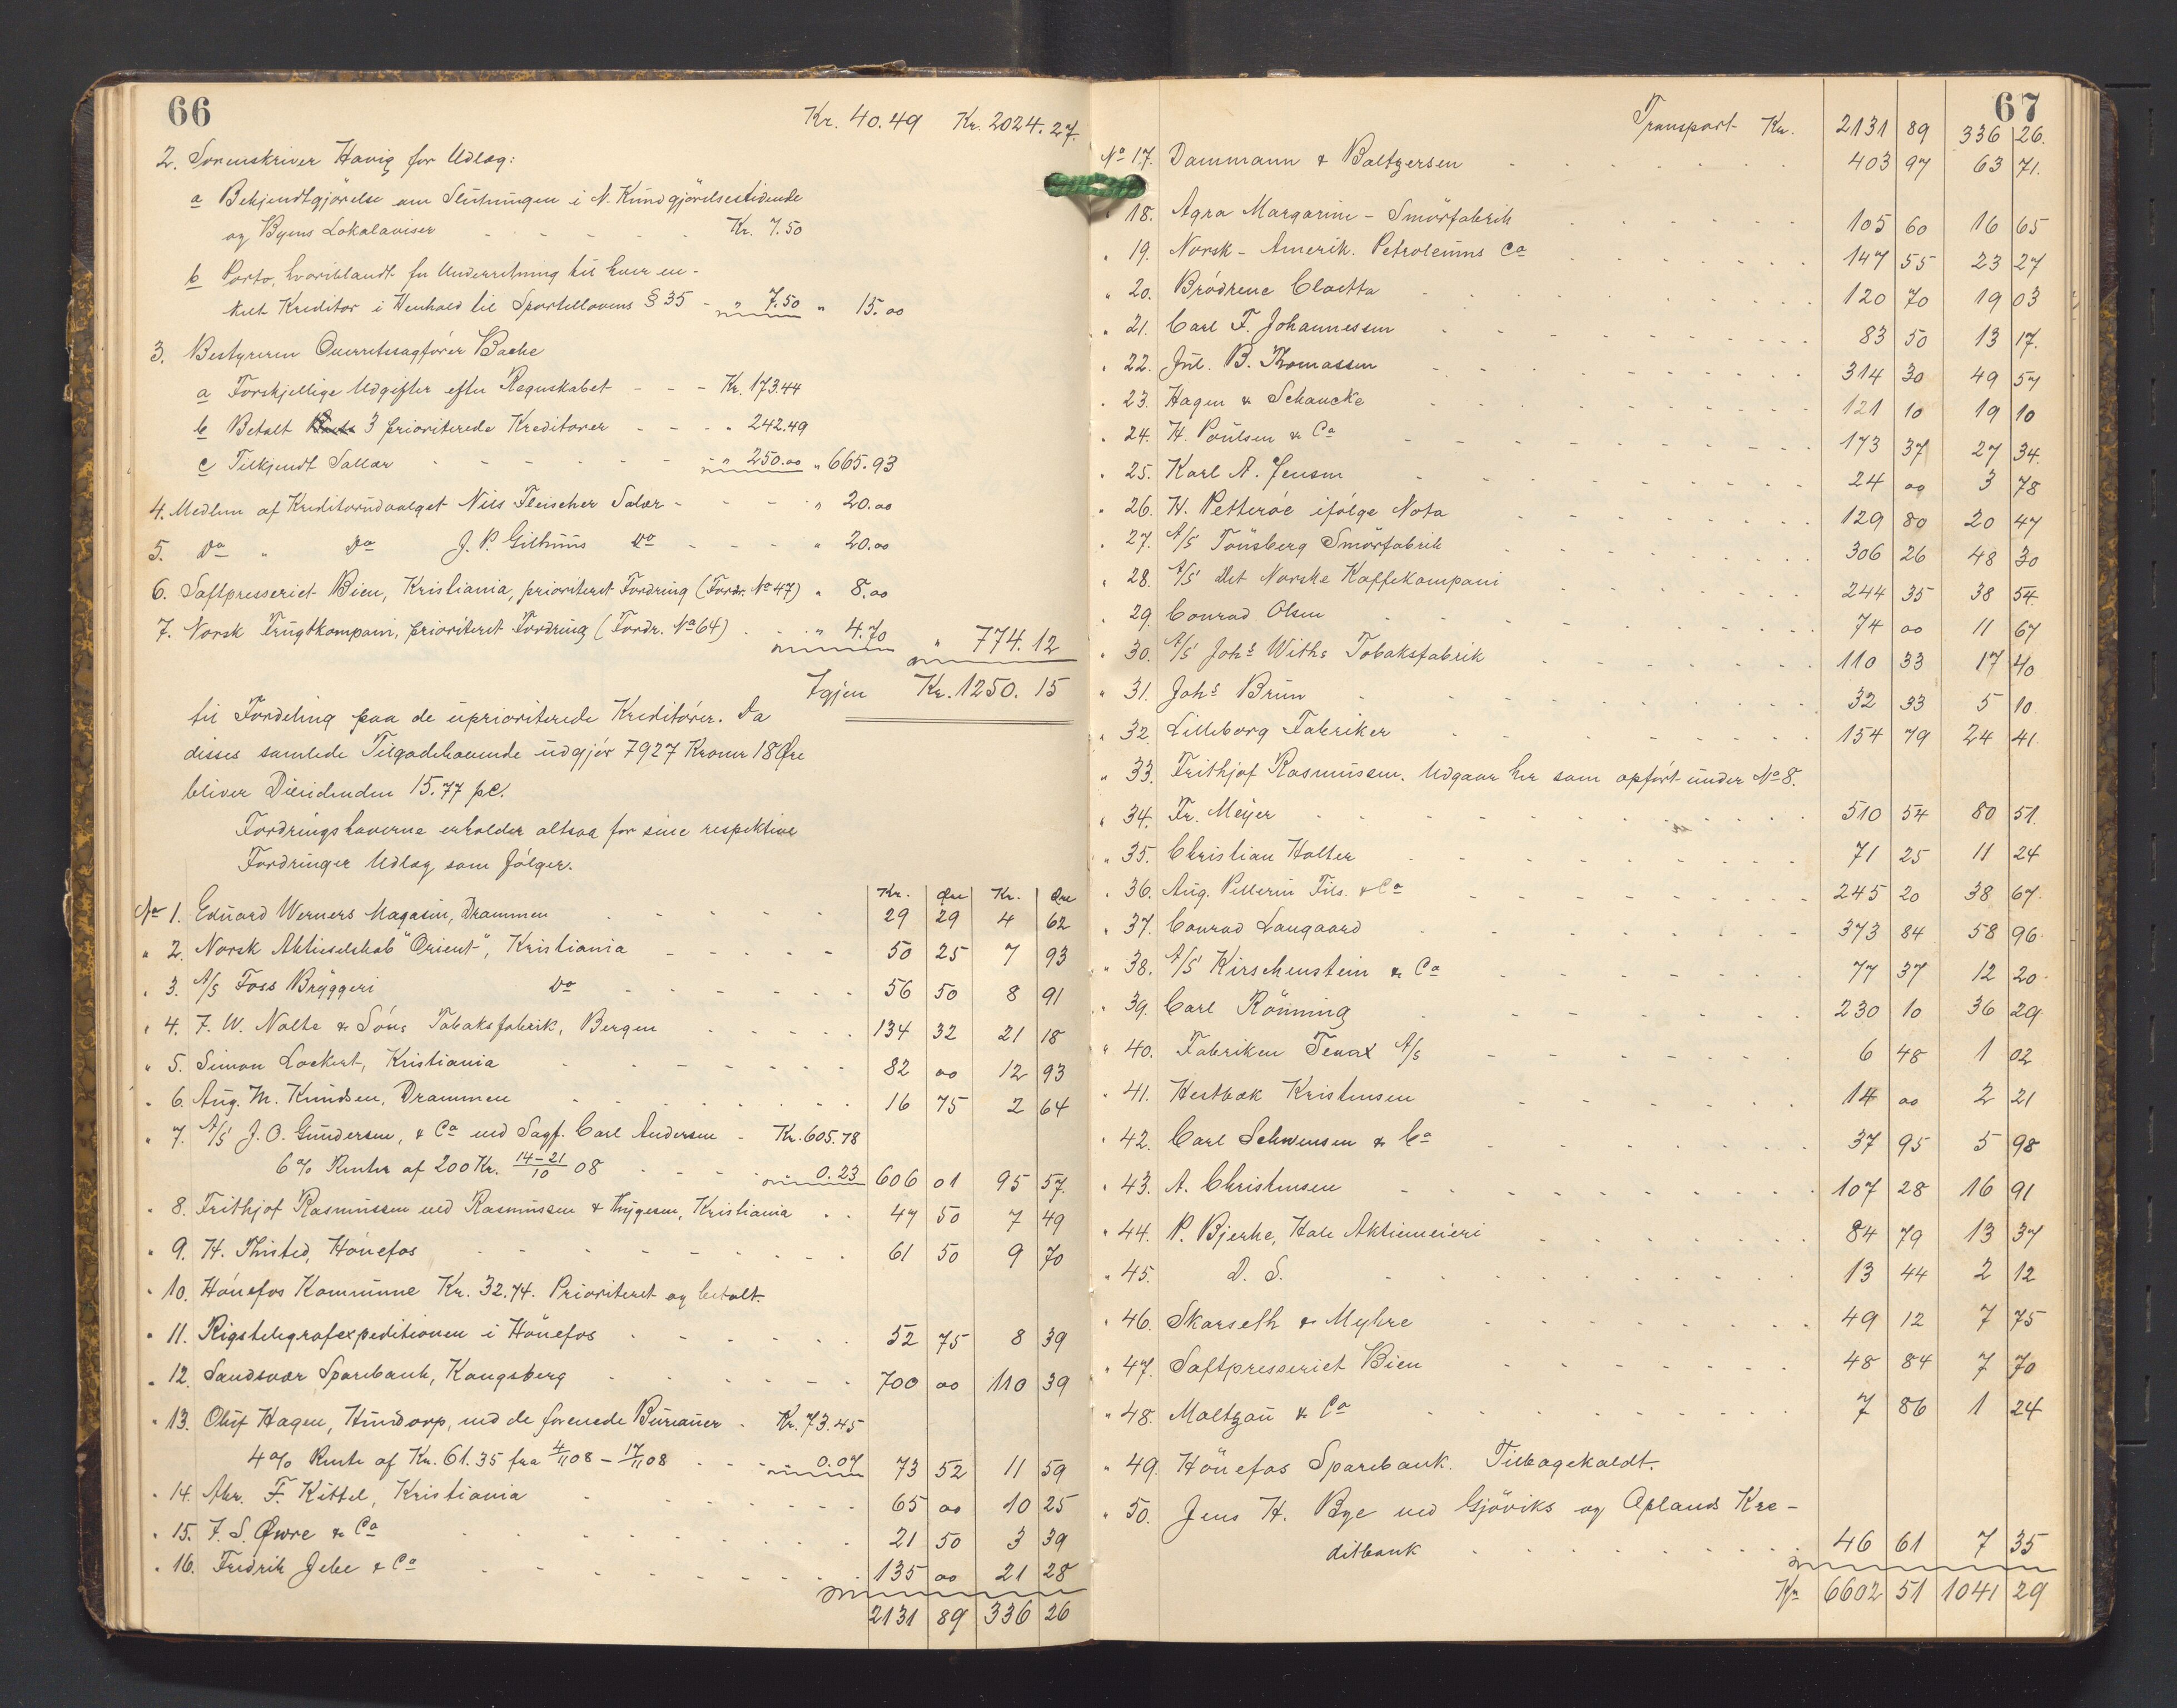 66
Kr. 40.49 Kr. 2024.27.
2. Sorenskriver Havig for Udlæg:
a Bekjendtgjörelse om Slutningen i N. Kundgjörelsestidende
og Byens Lokalaviser - - - - - Kr. 7.50
b Porto, hvoriblandt for Underretning til hver en-
kelt Kreditor i Henhold til Sportellovens § 35 - " 7.50 " 15.00
3. Bestyreren Overretssagförer Bache
a Forskjellige Udgifter efter Regnskabet - - - Kr. 173.44
b Betalt 3 prioriterede Kreditorer - - - " 242.49
c Tilkjendt Sallær - - - - - - " 250.00 " 665.93
4. Medlem af Kreditorudvalget Nils Fleischer Salær - - - " 20.00
5. Do " Do J. P. Gilhuus Do - - - - " 20.00
6. Saftpresseriet Bien, Kristiania, prioriteret Fordring (Fordr. No 47) " 8.00
7. Norsk Frugtkompani, prioriteret Fordring (Fordr. No 64) . . " 4.70 " 774.12
Igjen Kr. 1250.15
til Fordeling paa de uprioriterede Kreditorer. Da
disses samlede Tilgodehavende udgjör 7927 Kroner 18 Øre
bliver Dividenden 15.77 pc.
Fordringshaverne erholder altsaa for sine respektive
Fordringer Udlæg som fölger.
Kr. Øre Kr. Øre
No 1. Eduard Werners Magasin, Drammen 29 29 4 62
" 2. Norsk Aktieselskab "Orient", Kristiania 50 25 7 93
" 3. A/S Foss Bryggeri Do 56 50 8 91
" 4. F. W. Nolte & Söns Tobaksfabrik, Bergen 134 32 21 18
" 5. Simon Lockert, Kristiania 82 00 12 93
" 6. Aug. M. Knudsen, Drammen 16 75 2 64
" 7. A/S J. O. Gundersen, & Co ved Sagf. Carl Andersen - Kr. 605.78
6% Renter af 200 Kr. 14-21/10 08 0.23 606 01 95 57.
" 8. Frithjof Rasmussen ved Rasmussen & Thygesen, Kristiania 47 50 7 49
" 9. H. Thisted, Hönefos 61 50 9 70
" 10. Hönefos Kommune Kr. 32.74. Prioriteret og betalt.
" 11. Rigstelegrafexpeditionen i Hönefos 52 75 8 39
" 12. Sandsvær Sparebank, Kongsberg 700 00 110 39
" 13. Oluf Hagen, Hundorp, ved de forenede Bureauer - Kr. 73.45
4% Rente af Kr. 61.35 fra 4/11 08 - 17/11 08 0.07 73 52 11 59
" 14. Abr. F. Kittel, Kristiania 65 00 10 25
" 15. F. S. Øvre & Co 21 50 3 39
" 16. Fredrik Jebe & Co 135 00 21 28
2131 89 336 26
67
Transport Kr. 2131 89 336 26.
No 17. Dammann & Baltzersen 403 97 63 71.
" 18. Agra Margarin - Smörfabrik 105 60 16 65
" 19. Norsk - Amerik. Petroleums Co 147 55 23 27
" 20. Brödrene Cloetta 120 70 19 03
" 21. Carl F. Johannessen 83 50 13 17.
" 22. Jul. B. Thomassen 314 30 49 57
" 23. Hagen & Schancke 121 10 19 10
" 24. H. Poulsen & Co 173 37 27 34.
" 25. Karl A. Jensen 24 00 3 78
" 26. H. Petteröe ifölge Nota 129 80 20 47
" 27. A/S Tönsberg Smörfabrik 306 26 48 30
" 28. A/S Det Norske Kaffekompani 244 35 38 54.
" 29. Conrad Olsen 74 00 11 67
" 30. A/S Johs Withs Tobaksfabrik 110 33 17 40
" 31. Johs Brun 32 33 5 10
" 32. Lilleborg Fabriker 154 79 24 41.
" 33. Frithjof Rasmussen. Udgaar her som opfört under No 8.
" 34. Fr. Meyer 510 54 80 51.
" 35. Christian Holter 71 25 11 24
" 36. Aug. Pellerin Fils. & Co 245 20 38 67.
" 37. Conrad Langaard 373 84 58 96.
" 38. A/S Kirschenstein & Co 77 37 12 20.
" 39. Carl Rönning 230 10 36 29.
" 40. Fabriken Tenax A/S 6 48 1 02
" 41. Hestbæk Kristensen 14 00 2 21
" 42. Carl Schwensen & Co 37 95 5 98
" 43. A. Christensen 107 28 16 91
" 44. P. Bjerke, Hole Aktiemeieri 84 79 13 37
" 45. D. S. 13 44 2 12
" 46. Skarseth & Myhre 49 12 7 75
" 47. Saftpresseriet Bien 48 84 7 70
" 48. Maltzau & Co 7 86 1 24
" 49. Hönefos Sparebank. Tilbagekaldt.
" 50. Jens H. Bye ved Gjöviks og Oplands Kre-
ditbank 46 61 7 35
Kr 6602 51 1041 29